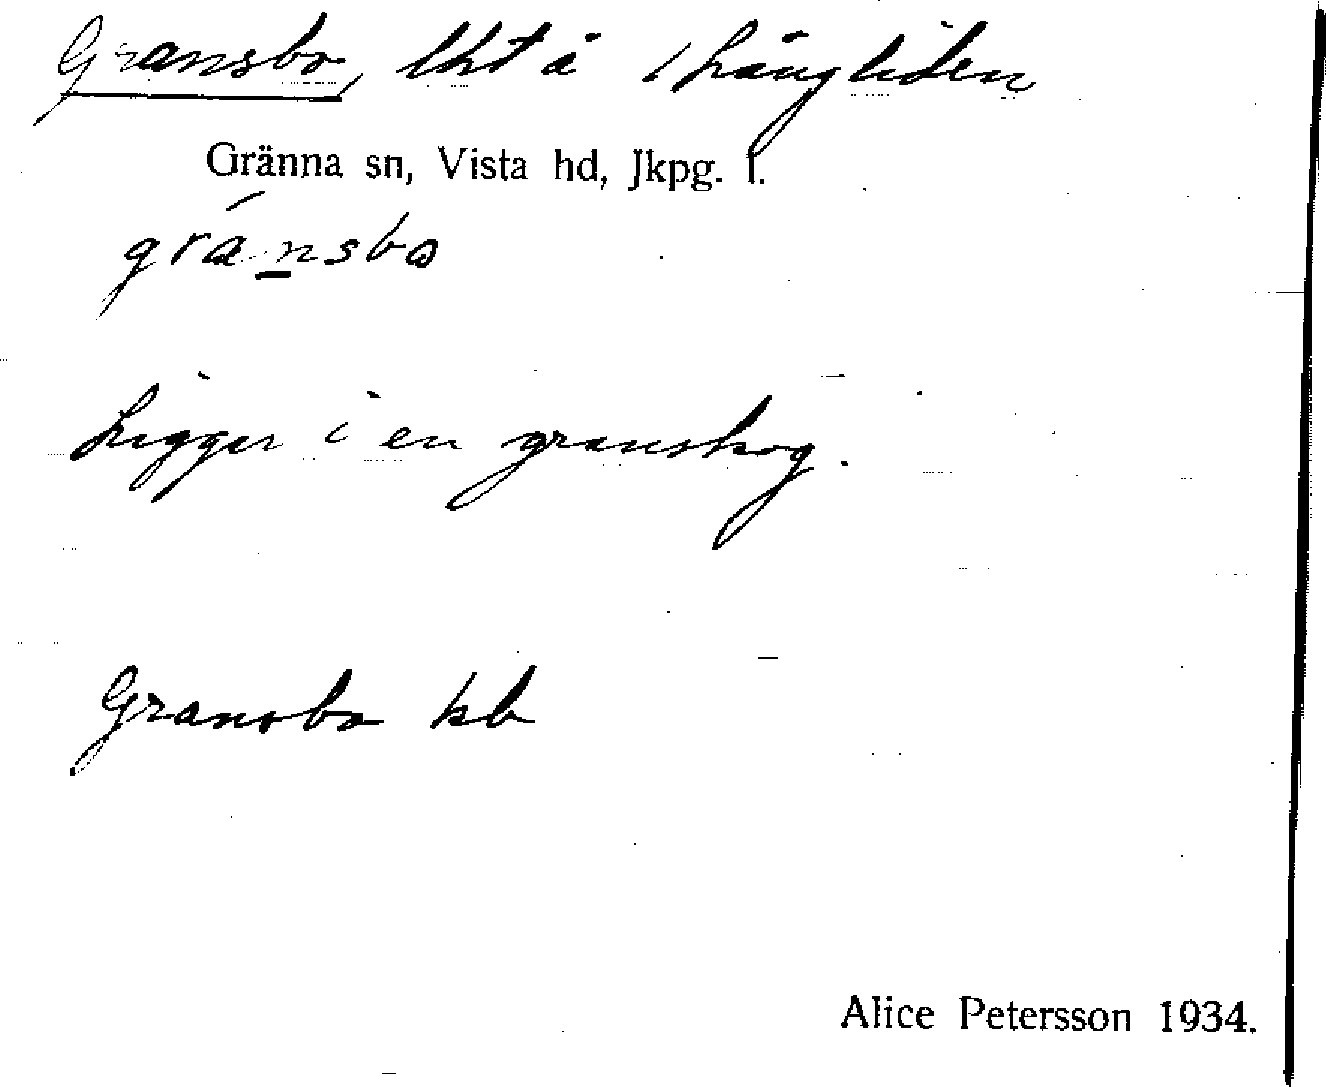 Gransbo, lht å Långliden
Gränna sn, Vista hd, Jkpg. l.
gránsbo
Ligger i en granskog.
Gransbo kb
Alice Petersson 1934.